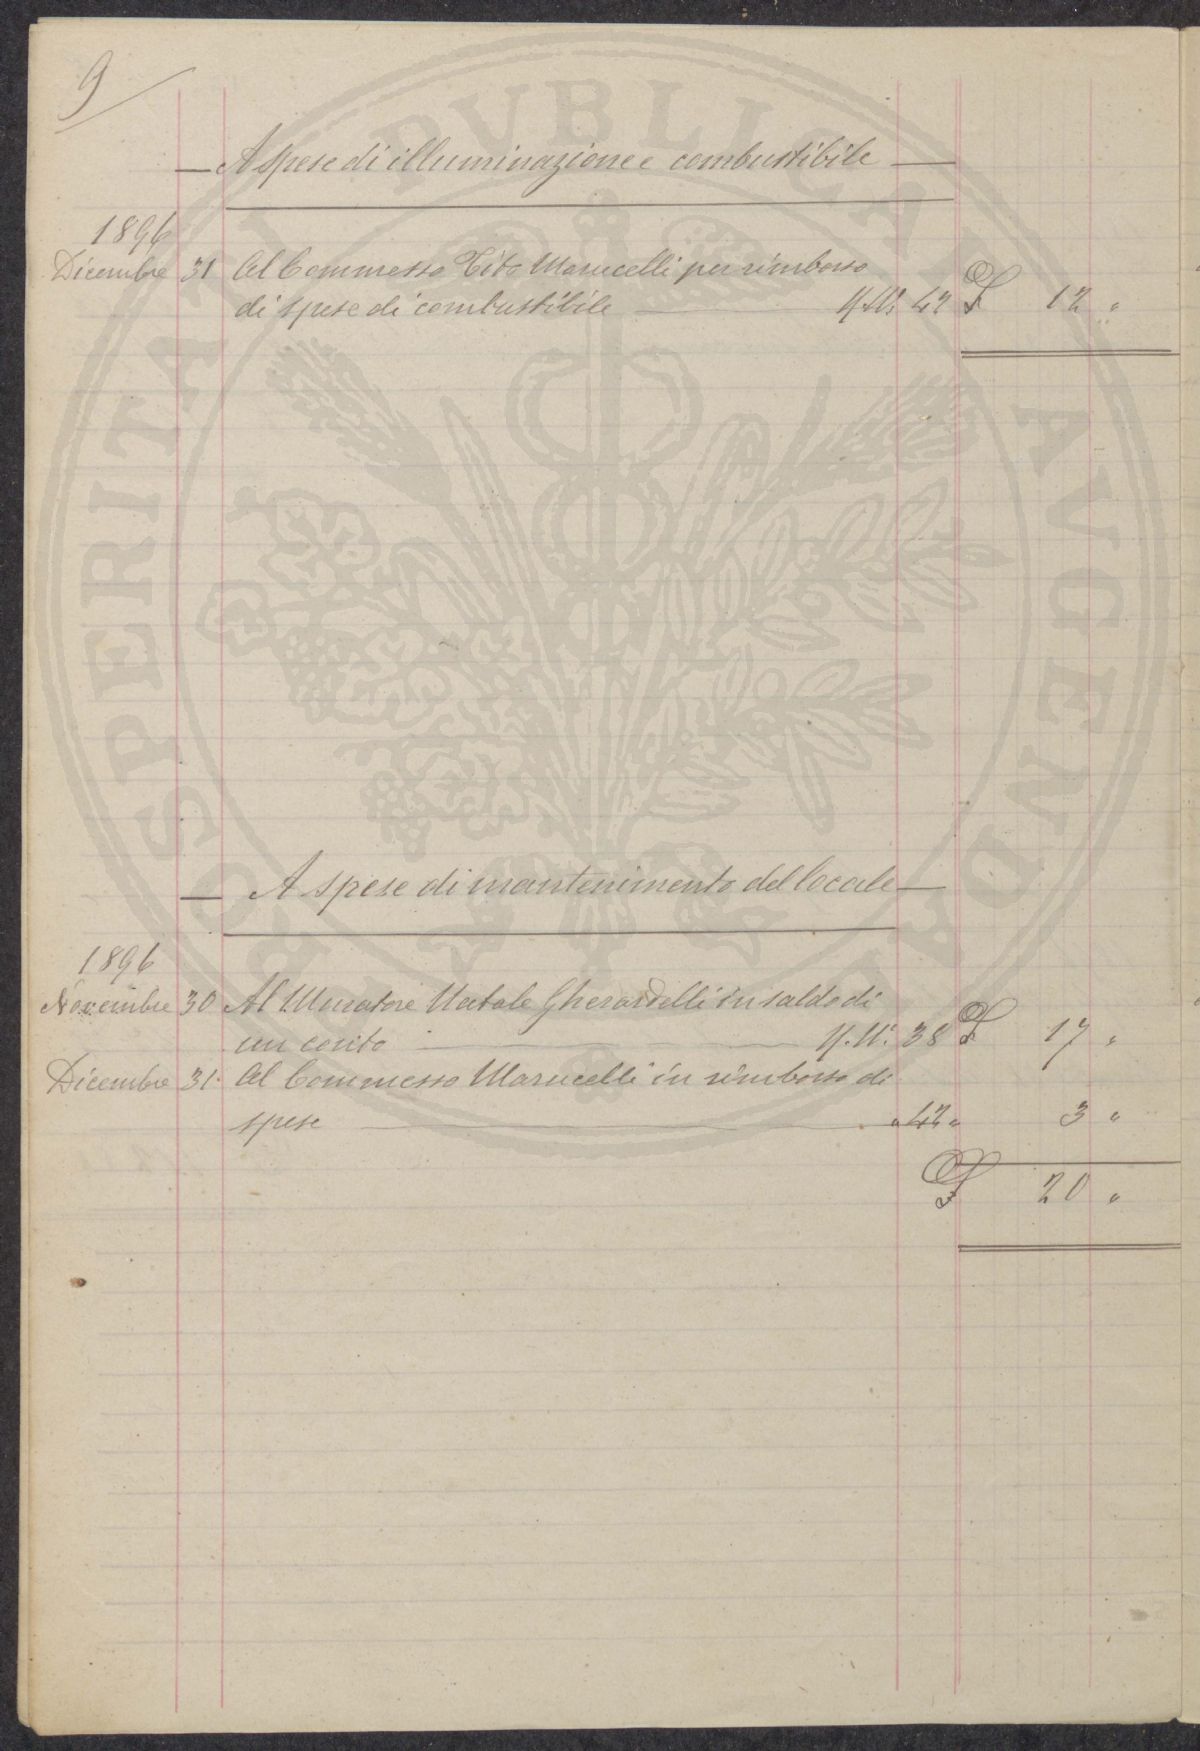 9
— A spese di illuminazione e combustibile —
1896
Dicembre 31 Al Commesso Tito Marucelli per rimborso
di spese di combustibile 42 £ 12 "
— A spese di mantenimento del locale —
1896
Novembre 30 Al Muratore Natale Gherardelli in saldo di
un conto M. N.° 38 £ 17 "
Dicembre 31. Al Commesso Marucelli in rimborso di
spese " 42 " 3 "
£ 20 "
PROSPERITATI PVBLICAE AVGENDAE